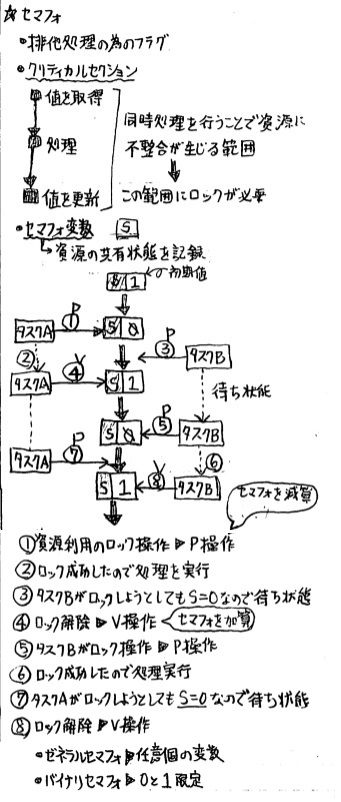 ☆セマフォ
•排他処理の為のフラグ
•クリティカルセクション
値を取得
処理
値を更新
同時処理を行うことで資源に
不整合が生じる範囲
この範囲にロックが必要
•セマフォ変数 S
資源の共有状態を記録
S 1 初期値
P
タスクA ① S 0
P
② ③ タスクB
V
タスクA ④ S 1
待ち状態
P
S 0 ⑤ タスクB
P
タスクA ⑦ ⑥
V
S 1 ⑧ タスクB
セマフォを減算
①資源利用のロック操作▶P操作
②ロック成功したので処理を実行
③タスクBがロックしようとしてもS=0なので待ち状態
④ロック解除▶V操作 セマフォを加算
⑤タスクBがロック操作▶P操作
⑥ロック成功したので処理実行
⑦タスクAがロックしようとしてもS=0なので待ち状態
⑧ロック解除▶V操作
•ゼネラルセマフォ▶任意個の変数
•バイナリセマフォ▶0と1限定